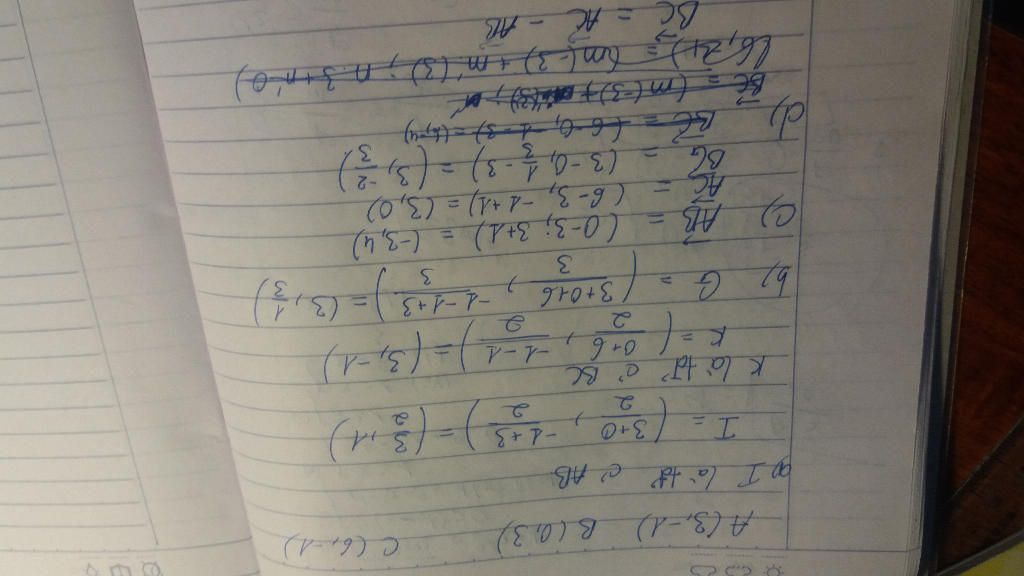 A(3,-1) B(0,3) C(6,-1)
a) I là tđ c' AB
I = (3+0/2, -1+3/2) = (3/2, 1)
K là tđ c' BC
K = (0+6/2, -1-1/2) = (3,-1)
b) G = (3+0+6/3, -1-1+3/3) = (3, 1/3)
c) AB = (0-3; 3+1) = (-3,4)
AC = (6-3, -1+1) = (3,0)
BG = (3-0, 1/3-3) = (3, -2/3)
d) BC = (6-0, -1-3) =
BC = (m(-3)+
= (m(-3)+m'(3); n.3+n'.0)
BC = AC - AB